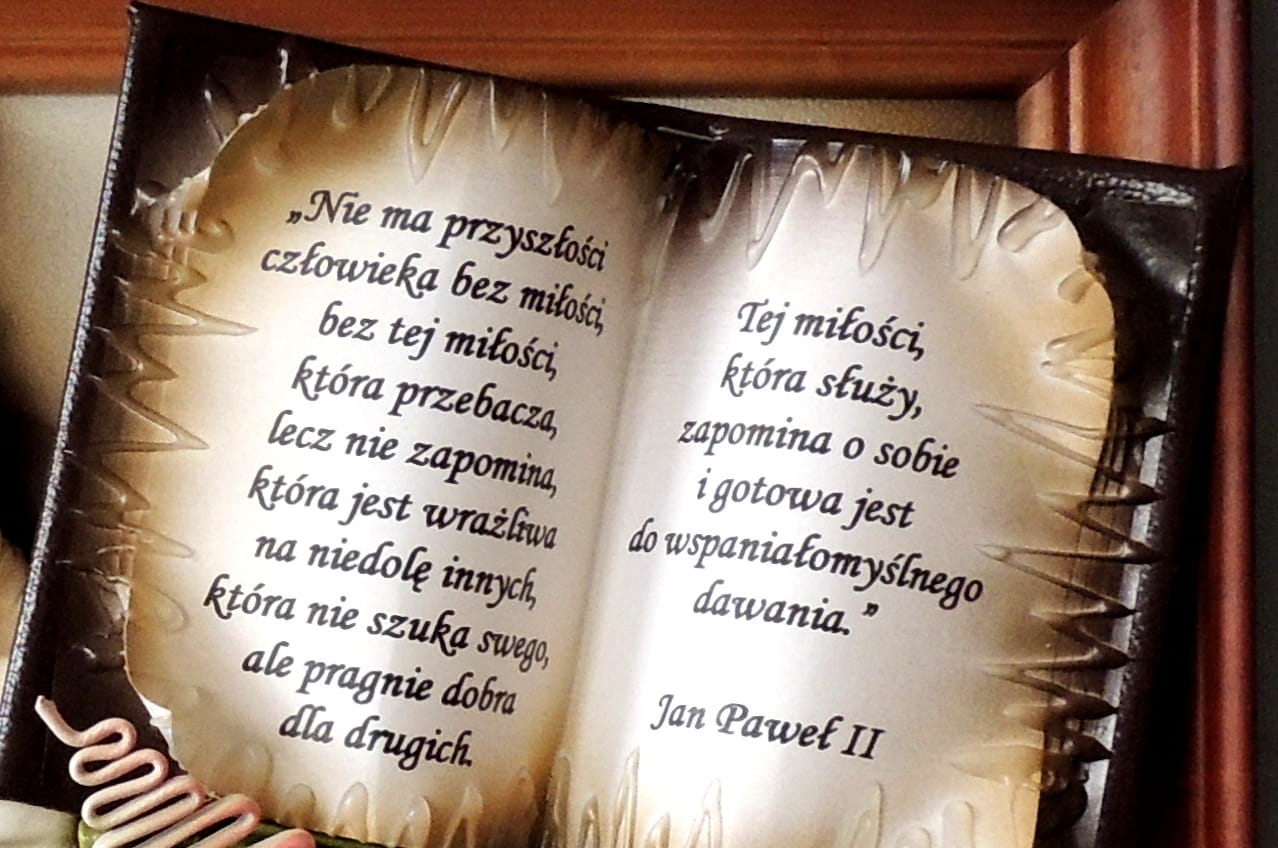 „Nie ma przyszłości
człowieka bez miłości,
bez tej miłości,
która przebacza,
lecz nie zapomina,
która jest wrażliwa
na niedolę innych,
która nie szuka swego,
ale pragnie dobra
dla drugich.
Tej miłości,
która służy,
zapomina o sobie
i gotowa jest
do wspaniałomyślnego
dawania.”
Jan Paweł II